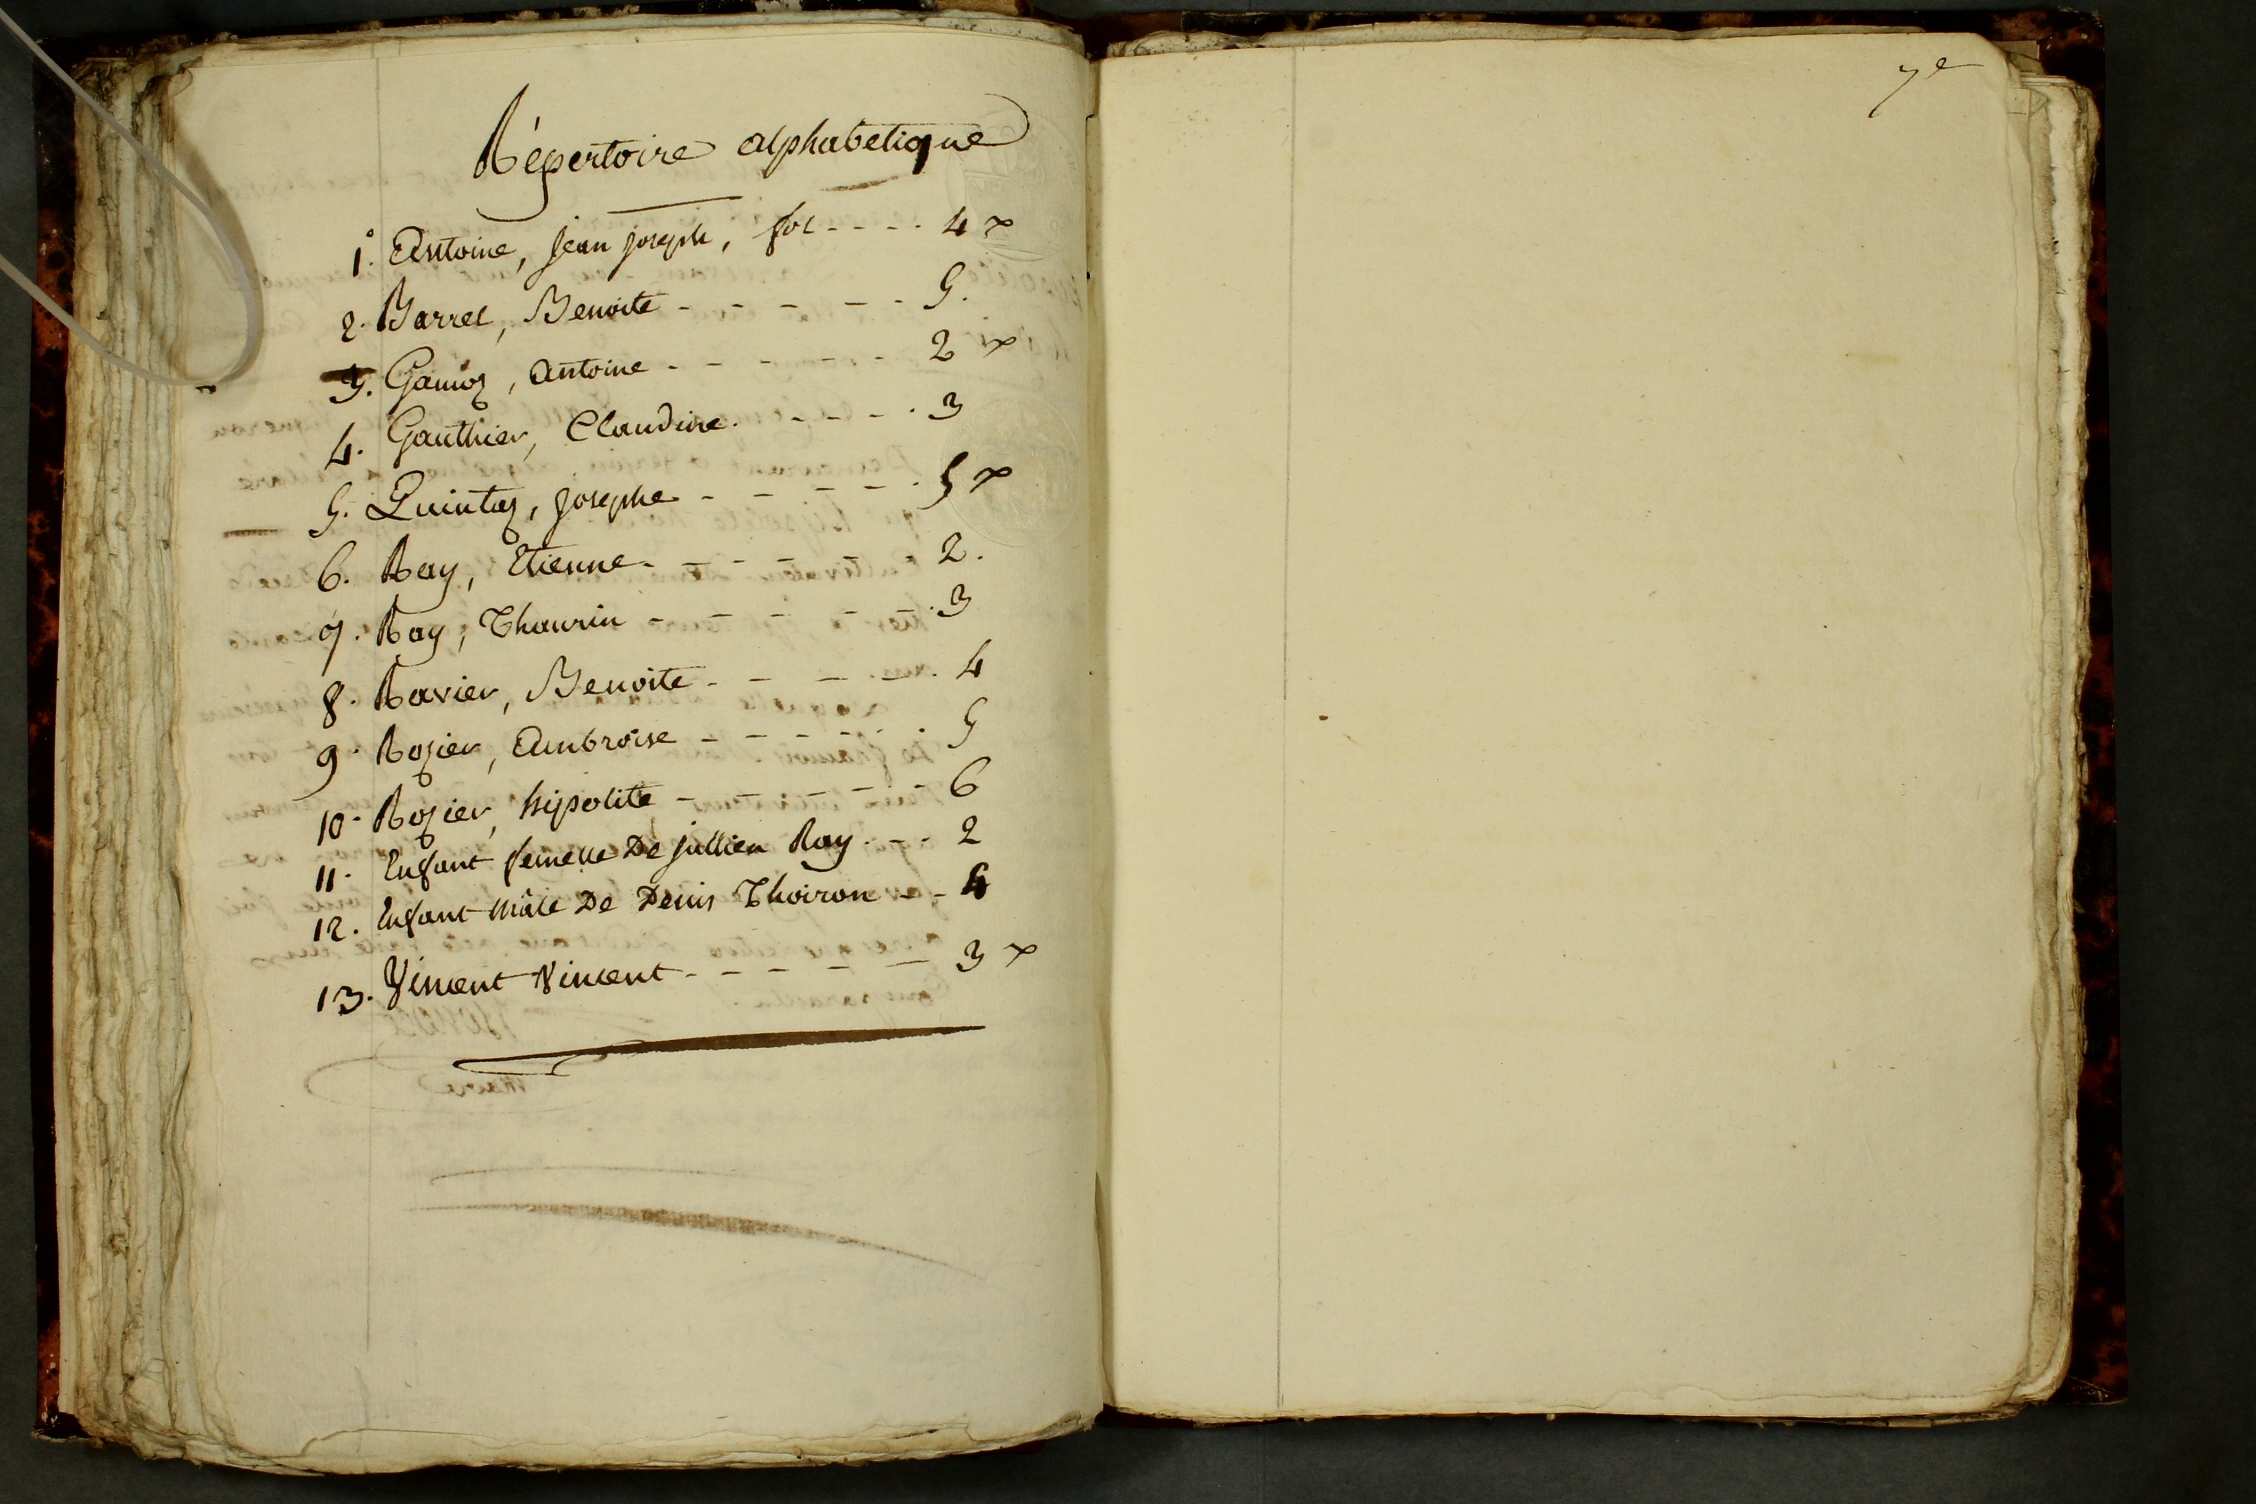 Répertoire alphabetique
1°. Antoine, Jean joseph, fol - - - - 4 x
2. Barret, Benoite - - - - - 5.
3. Gamoz, Antoine - - - - - 2 x
4. Gauthier, Claudine. - - - - . 3
5. Quintaz, josephe - - - - - . 5 x
6. Ray, Etienne - - - - - 2.
7. Ray, Thaurin - - - - - . 3
8. Ravier, Benoite - - - - - . 4
9. Rozier, Ambroise - - - - - . 5
10. Rozier, hipolite - - - - - - 6
11. Enfant femelle De jullien Ray. - - 2
12. Enfant Mâle De Denis Thoiron - - 4
13. Vincent Vincent - - - - - - 3 x
7e